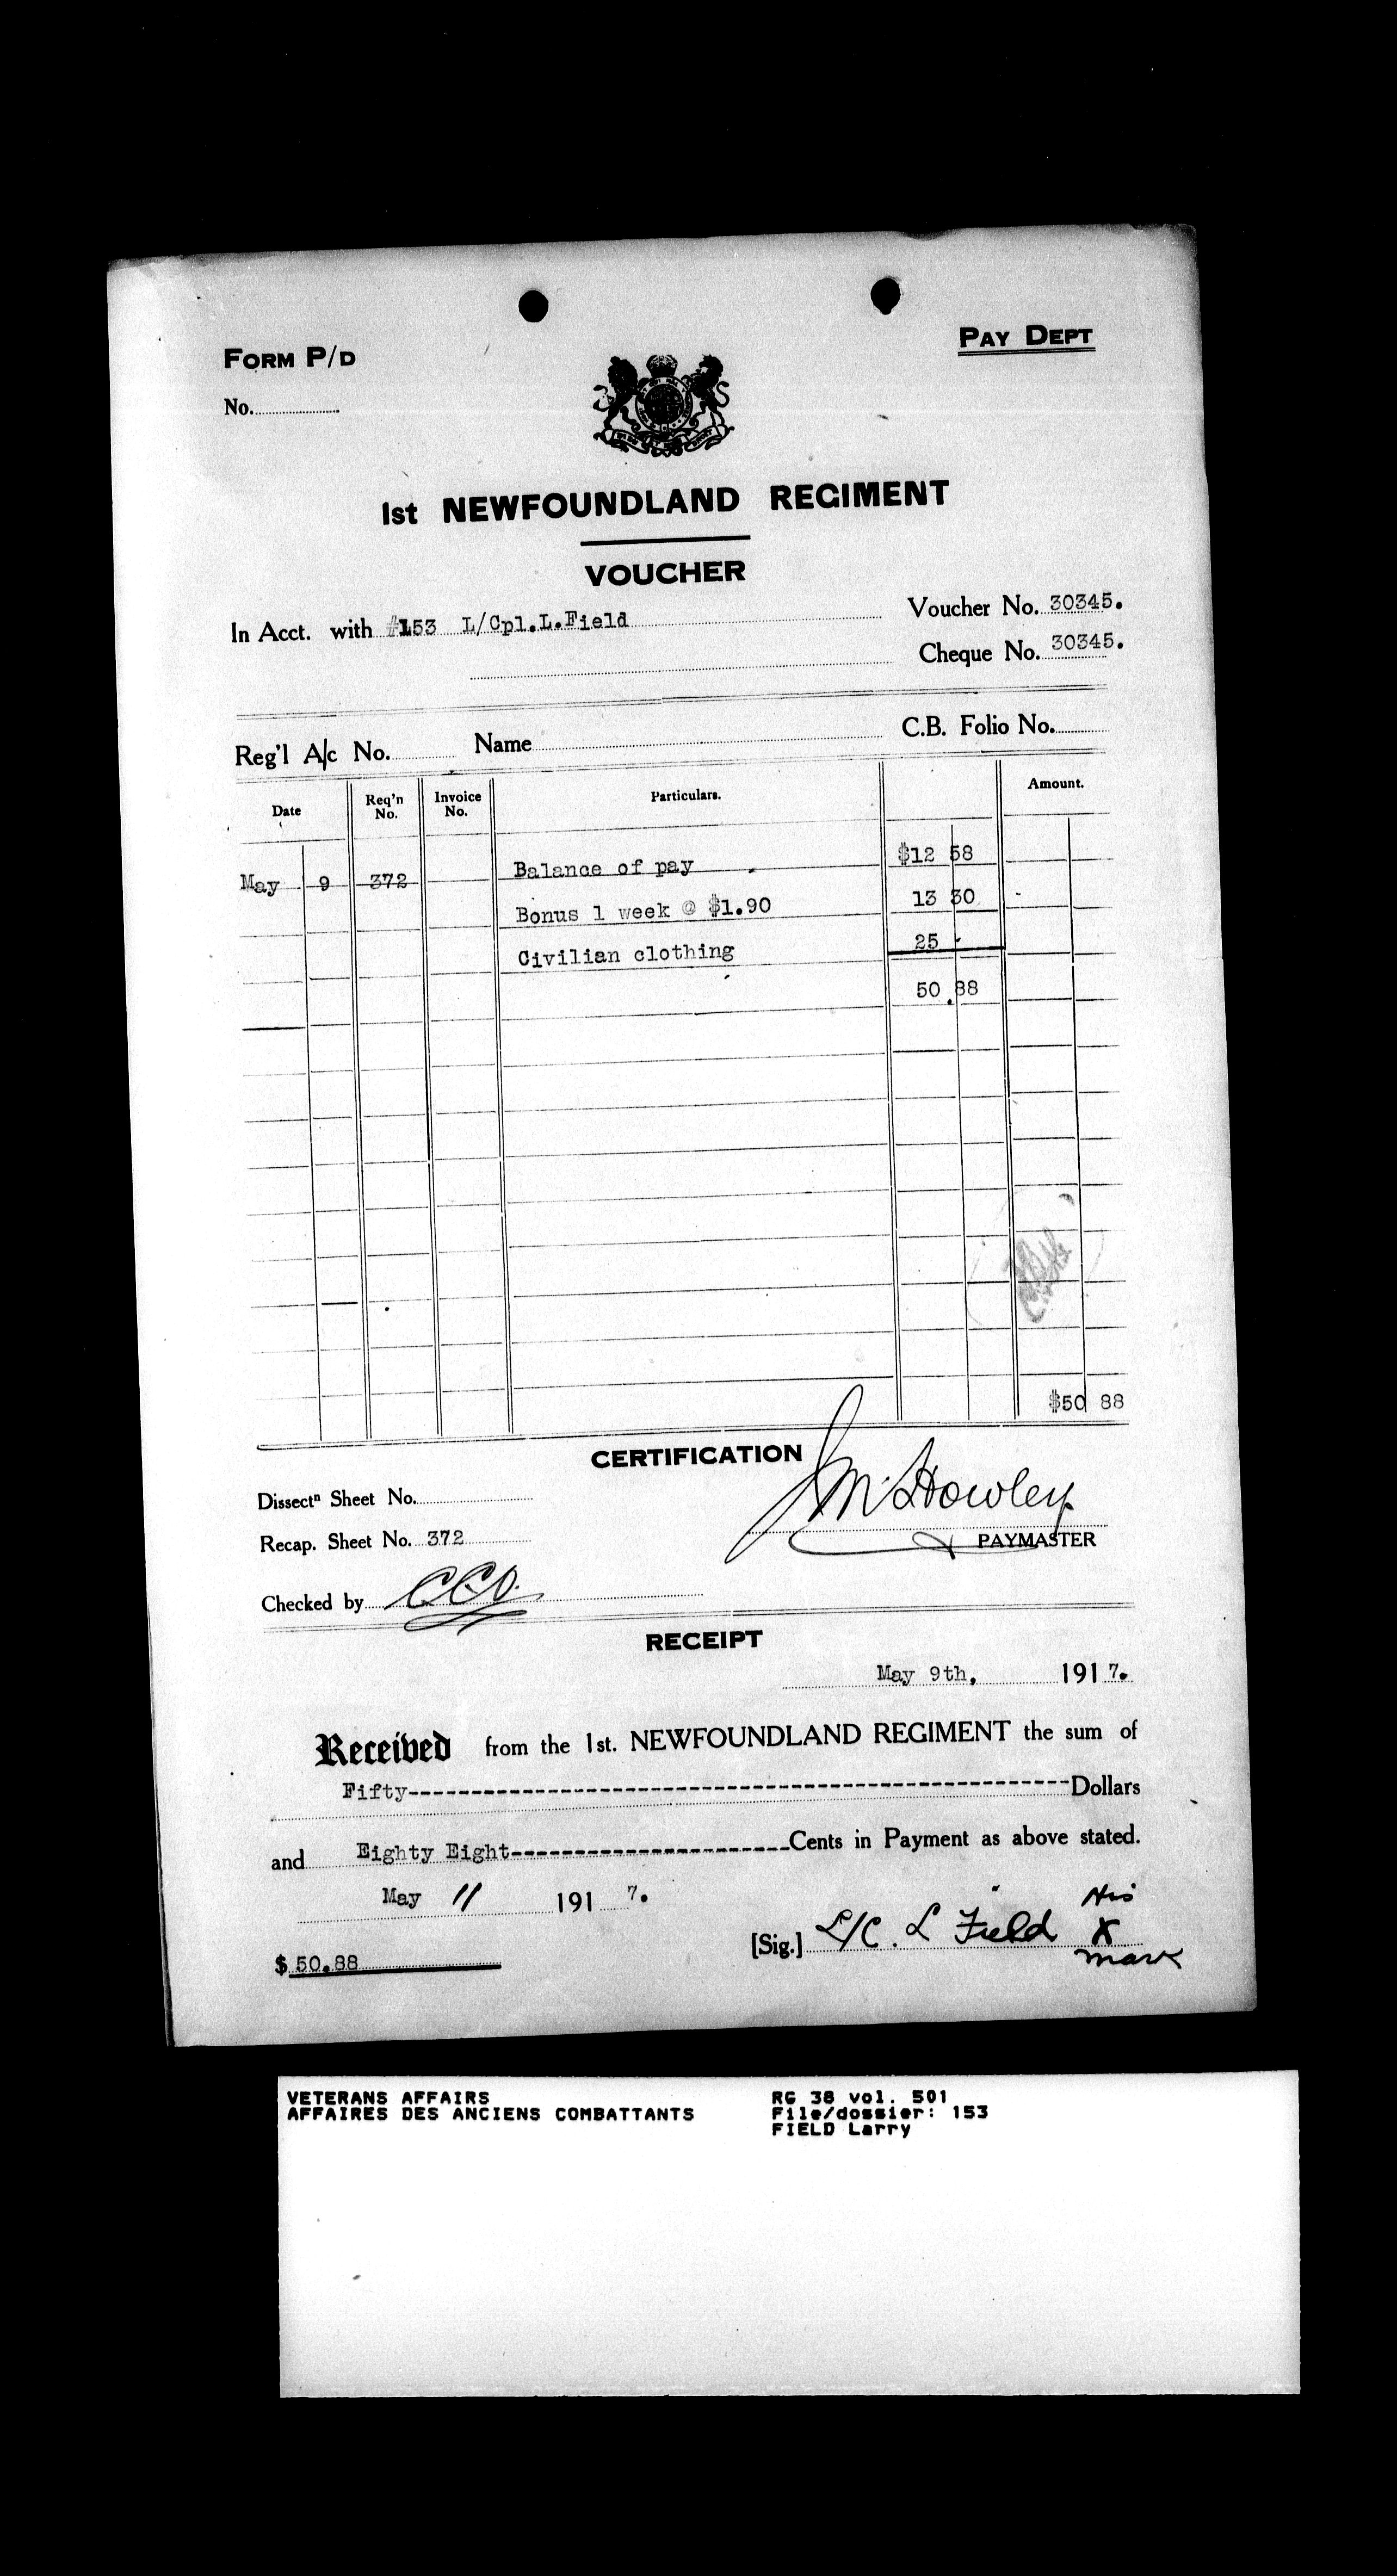 FORM P/D
PAY DEPT
No.
1st NEWFOUNDLAND REGIMENT
VOUCHER
In Acct. with #153 L/Cpl.L.Field
Voucher No. 30345.
Cheque No. 30345.
Reg'l A/c No. Name C.B. Folio No.
Date Req'n No. Invoice No. Particulars. Amount.
May 9 372 Balance of pay $12 58
Bonus 1 week @ $1.90 13 30
Civilian clothing 25 -
50.88
$50 88
CERTIFICATION
Dissectn Sheet No.
J M Howley
Recap. Sheet No. 372
PAYMASTER
Checked by CCO.
RECEIPT
May 9th, 1917.
Received from the 1st. NEWFOUNDLAND REGIMENT the sum of
Fifty----------------------------------------------------Dollars
and Eighty Eight----------------------Cents in Payment as above stated.
May 11 1917.
[Sig.] L/C. L Field His X mark
$ 50.88
VETERANS AFFAIRS
AFFAIRES DES ANCIENS COMBATTANTS
RG 38 vol. 501
File/dossier: 153
FIELD Larry